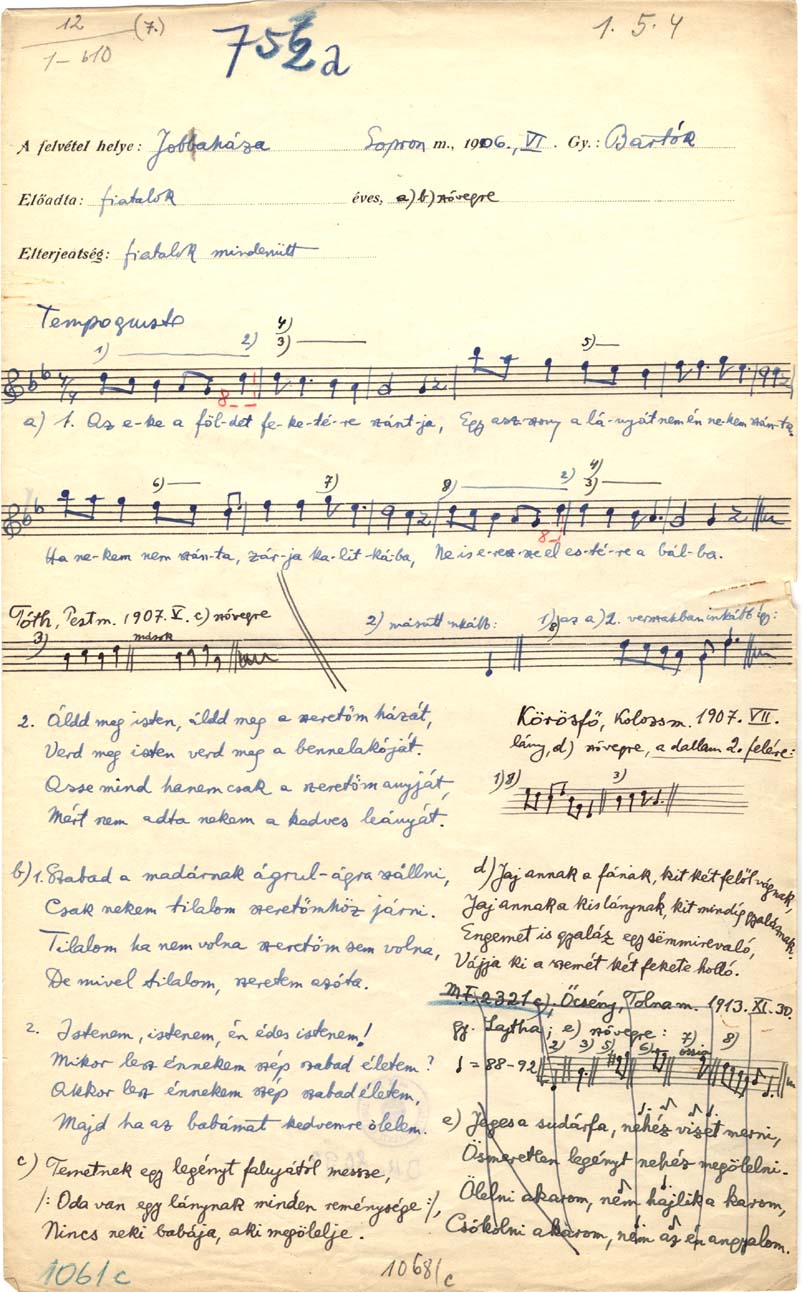 12 (7.)
1-610
756/2 a
1. 5. 4
A felvétel helye: Jobbaháza Sopron m., 1906., VI. Gy.: Bartók
Előadta: fiatalok éves, a) b) szövegre
Elterjedtség: fiatalok mindenütt
Tempo giusto
1) 2) 4) 3) 5)
8
a) 1. Az e-ke a föl-det fe-ke-té-re szánt-ja, Egy asz-szony a lá-nyát nem én ne-kem szán-ta,
6) 7) 8) 2) 4) 3)
8
Ha ne-kem nem szán-ta, zár-ja ka-lit-ká-ba, Ne is e-resz-sze el es-té-re a bál-ba.
Tóth, Pest m. 1907. V. c) szövegre
3) mások
2) másutt inkább:
1) 8) az a) 2. versszakban inkább így:
2. Áldd meg isten, áldd meg a szeretőm házát,
Verd meg isten verd meg a bennelakóját.
Azse mind hanem csak a szeretőm anyját,
Mért nem adta nekem a kedves leányát.
Körösfő, Kolozsm. 1907. VII.
lány, d) szövegre, a dallam 2. felére:
1) 8) 3)
b) 1. Szabad a madárnak ágrul-ágra szállni,
Csak nekem tilalom szeretőmhöz járni.
Tilalom ha nem volna szeretőm sem volna,
De mivel tilalom, szeretem azóta.
2. Istenem, istenem, én édes istenem!
Mikor lesz énnekem szép szabad életem?
Akkor lesz énnekem szép szabad életem,
Majd ha az babámat kedvemre ölelem.
c) Temetnek egy legényt falujától messze,
/: Oda van egy lánynak minden reménysége :/,
Nincs neki babája, aki megölelje.
d) Jaj annak a fának, kit két felől vágnak,
Jaj annak a kis lánynak, kit mindég gyaláznak.
Engemet is gyaláz egy sëmmirevaló,
Vájja ki a szemét két fekete holló.
M.F. 2321 a). Őcsény, Tolna m. 1913. XI. 30.
gy. Lajtha; e) szövegre:
♩ = 88-92 2) 3) 5) 6) 7) ossia 8)
e) Jeges a sudárfa, nehéz vizet merni,
Ösmeretlen legényt nehéz megölelni.
Ölelni akarom, nem hajlik a karom,
Csókolni akarom, nem az én angyalom.
1061/c
1068/c